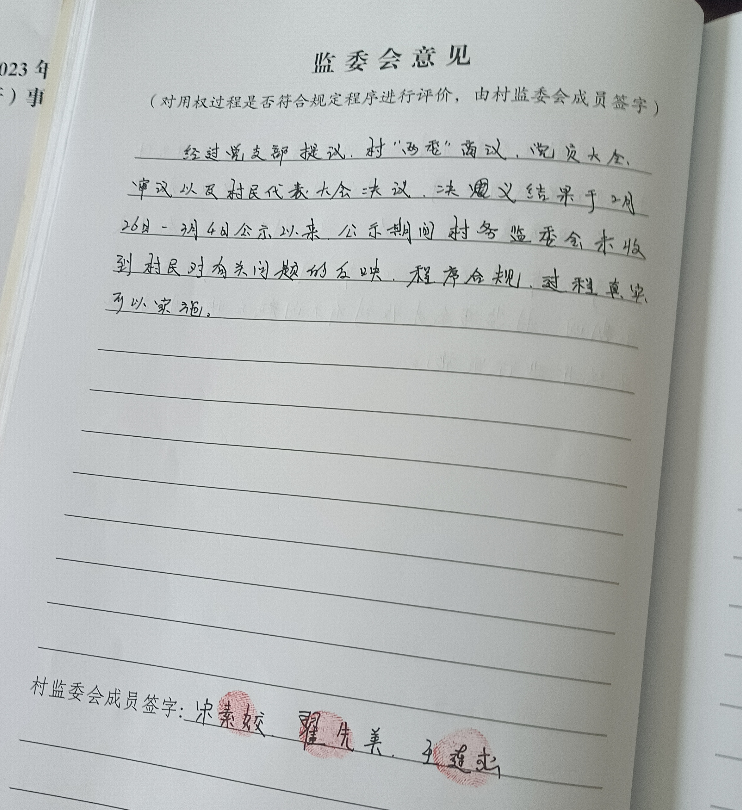 023年
）事
监委会意见
（对用权过程是否符合规定程序进行评价，由村监委会成员签字）
经过党支部提议、村“两委”商议、党员大会、
审议以及村民代表大会决议，决议结果于2月
26日-3月4日公示以来，公示期间村务监委会未收
到村民对有关问题的反映，程序合规，过程真实
可以实施。
村监委会成员签字：宋素姣、翟先美、王莲